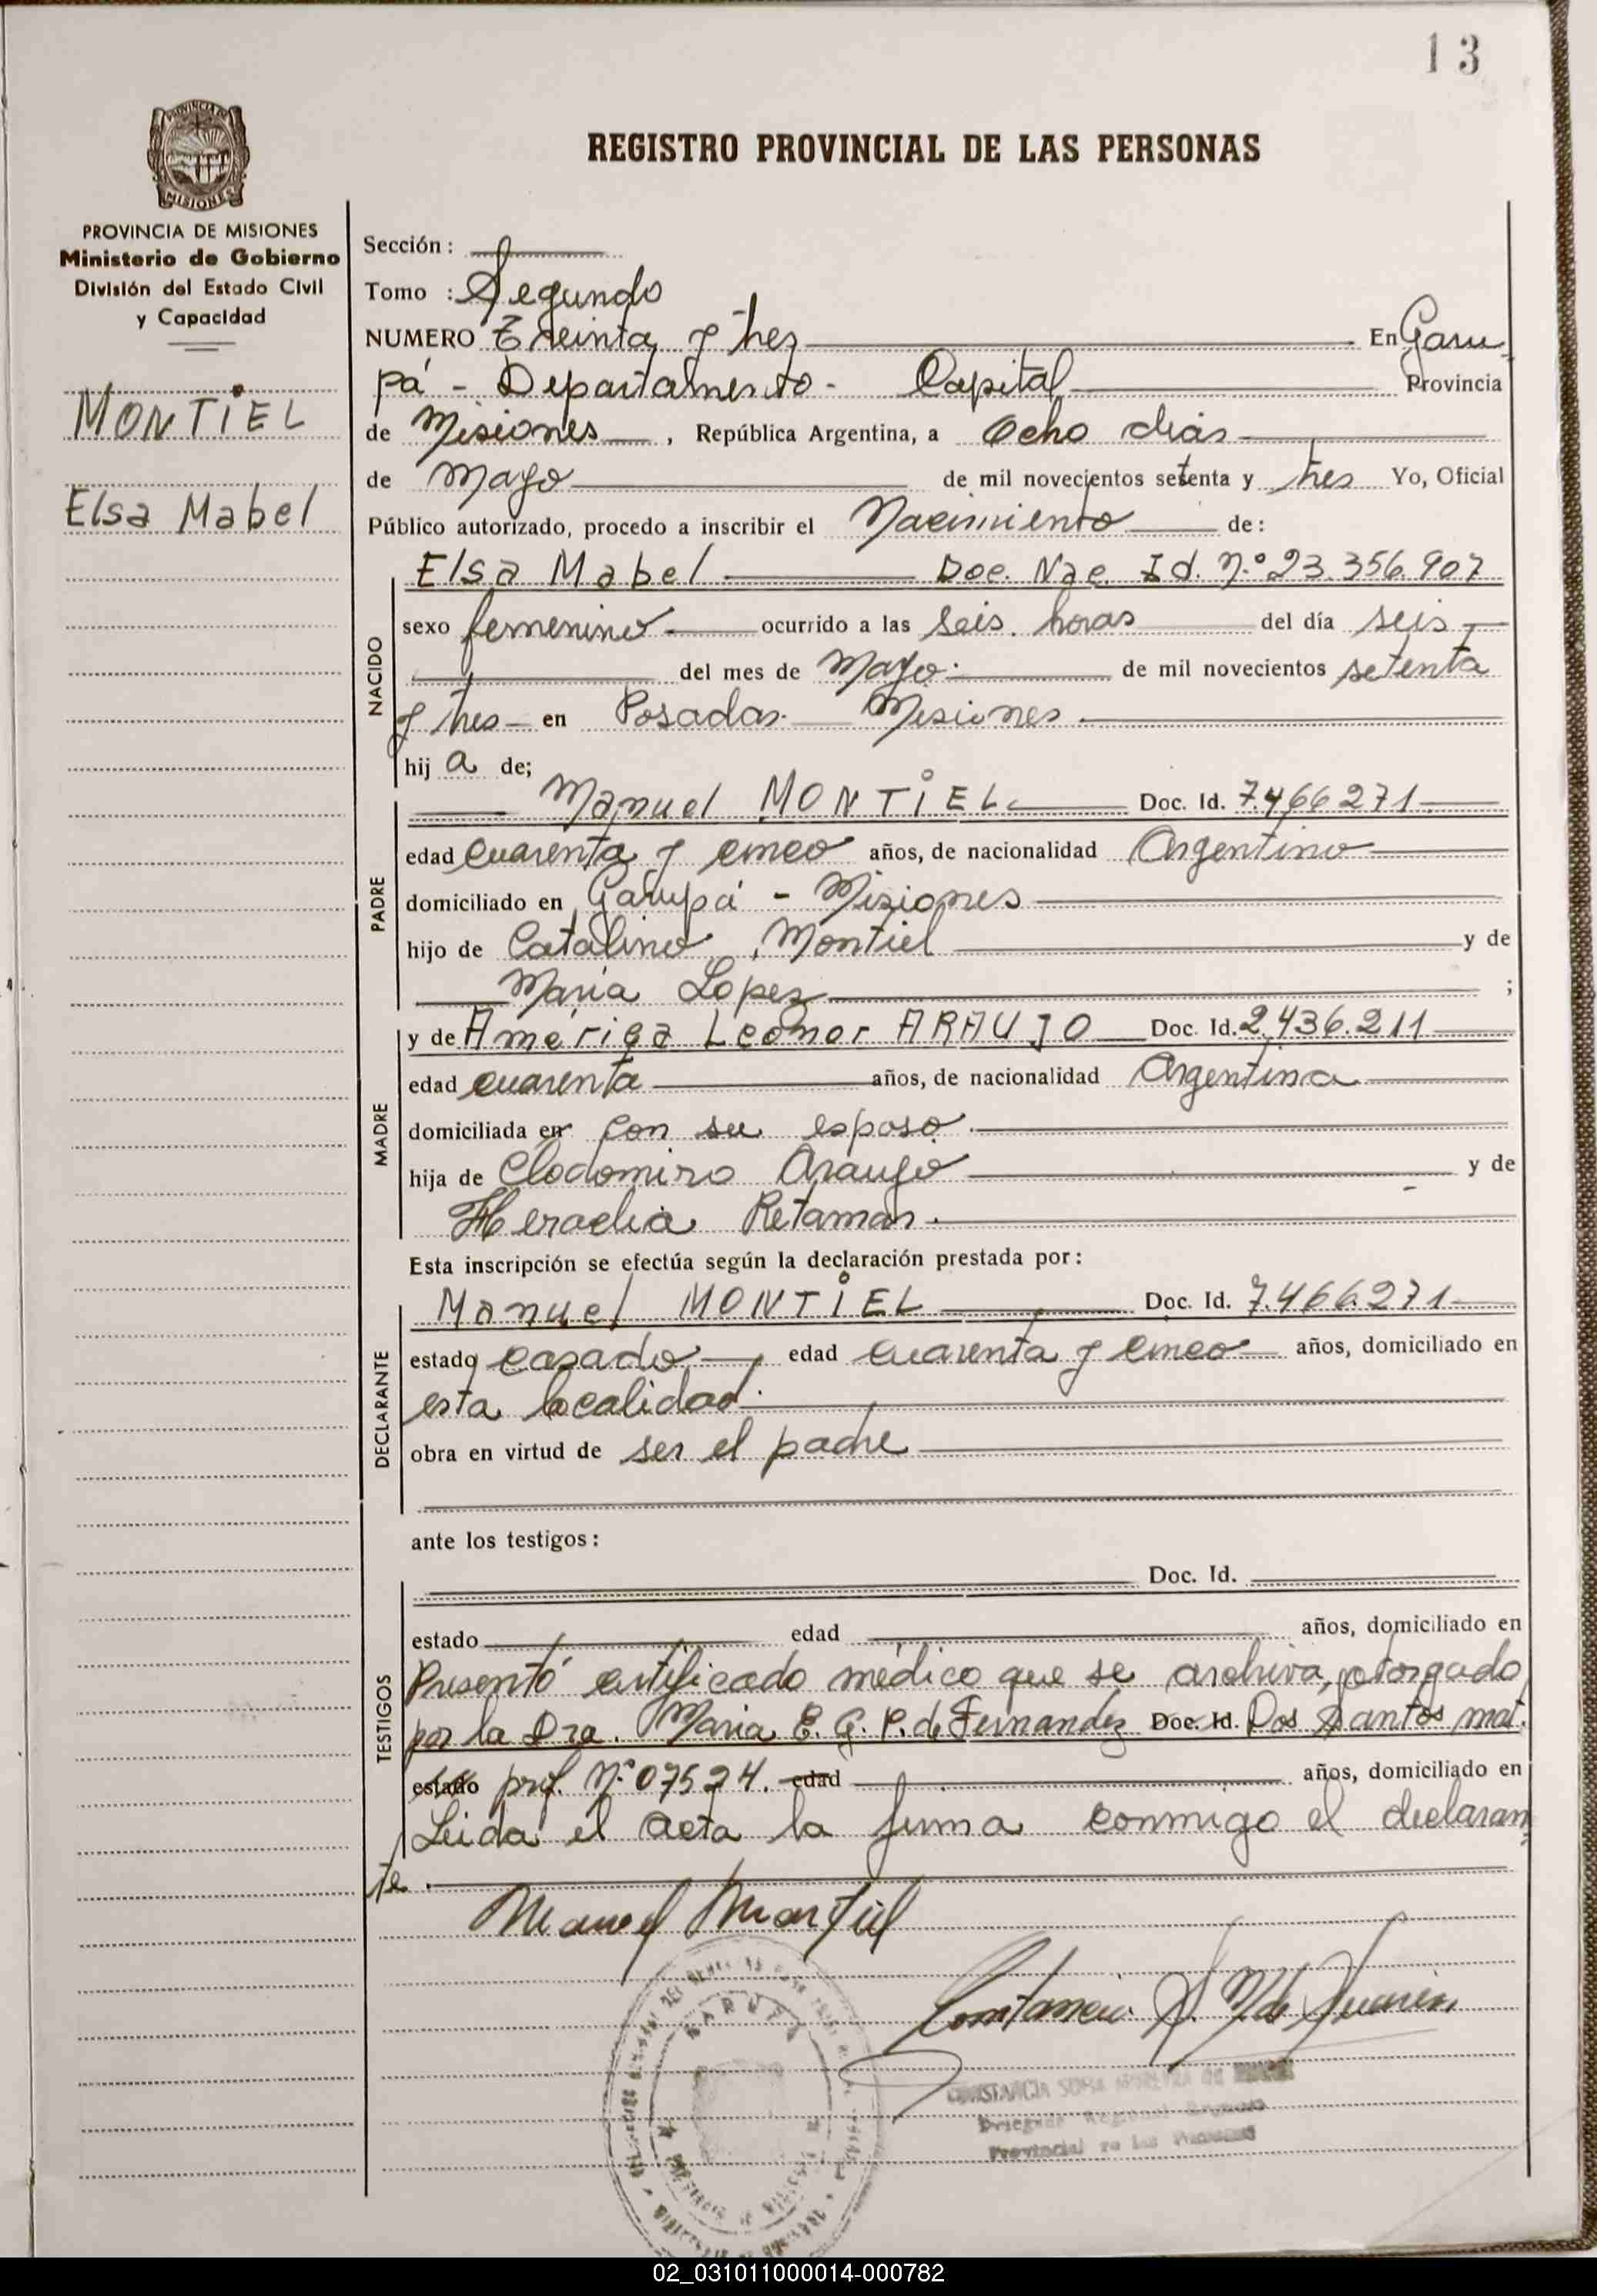 13
PROVINCIA DE
MISIONES
REGISTRO PROVINCIAL DE LAS PERSONAS
PROVINCIA DE MISIONES
Ministerio de Gobierno
División del Estado Civil
y Capacidad
MONTIEL
Elsa Mabel
Sección:
Tomo : Segundo
NUMERO Treinta y tres En Garu
pá - Departamento - Capital Provincia
de Misiones, República Argentina, a Ocho dias
de Mayo de mil novecientos setenta y tres Yo, Oficial
Público autorizado, procedo a inscribir el Nacimiento de:
NACIDO
Elsa Mabel Doc. Nac. Id. N.º 23.356.907
sexo femenino ocurrido a las seis horas del día seis
del mes de Mayo de mil novecientos setenta
y tres en Posadas - Misiones
hij a de;
PADRE
Manuel MONTIEL Doc. Id. 7.466271
edad cuarenta y cinco años, de nacionalidad Argentino
domiciliado en Garupá - Misiones
hijo de Catalino Montiel y de
Maria Lopez ;
MADRE
y de América Leonor ARAUJO Doc. Id. 2.436.211
edad cuarenta años, de nacionalidad Argentina
domiciliada en con su esposo
hija de Clodomiro Araujo y de
Heraclia Retamar.
Esta inscripción se efectúa según la declaración prestada por:
DECLARANTE
Manuel MONTIEL Doc. Id. 7.466.271
estado casado, edad cuarenta y cinco años, domiciliado en
esta localidad.
obra en virtud de ser el padre
ante los testigos:
TESTIGOS
Doc. Id.
estado edad años, domiciliado en
Presentó certificado médico que se archiva, otorgado
por la Dra. Maria E. G. P. de Fernandez Doc. Id. Dos Santos mat.
estado prof. N.º 07524. edad años, domiciliado en
Leida el acta la firma conmigo el declaran
te.
Manuel Montiel
Constancia S. M. de
GARUPA
CONSTANCIA SOSA MOREIRA DE
Delegada Regional Registro
Provincial de las Personas
02_031011000014-000782